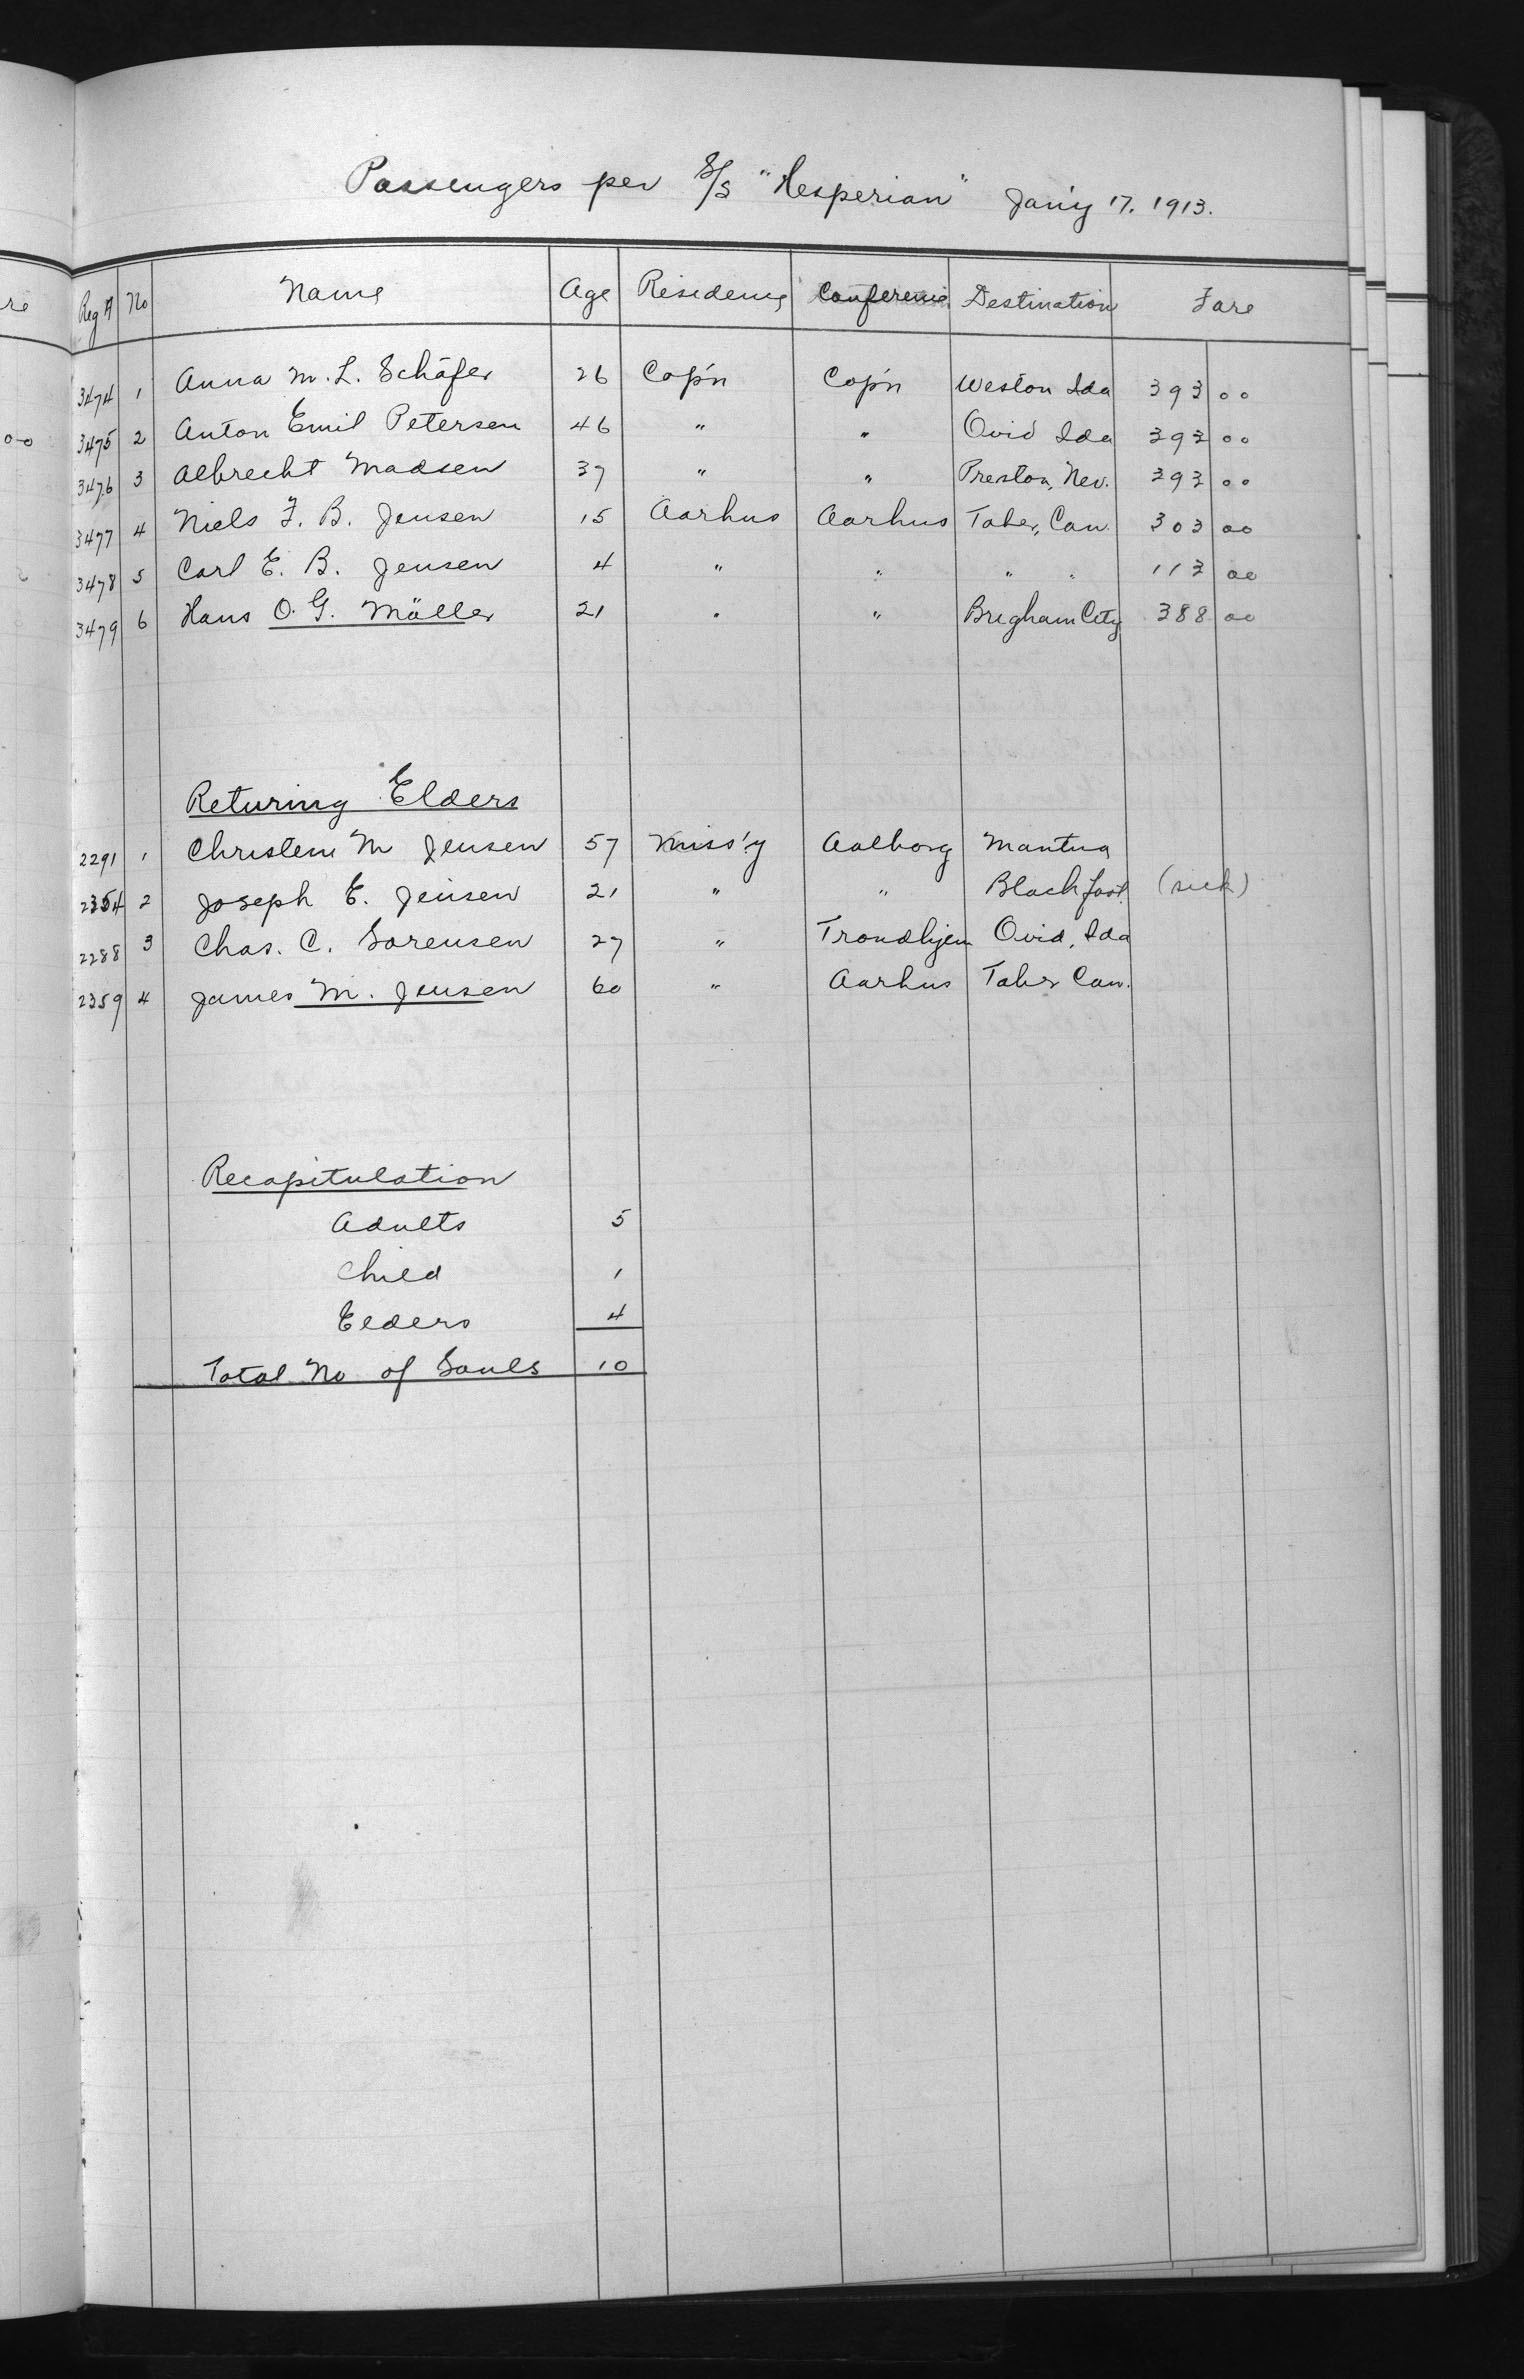 Passengers per S/S "Hesperian" Jan'y 17. 1913.
Reg # No Name Age Residence Conference Destination Fare
3474 1 Anna M. L. Schäfer 26 Cop'n Cop'n Weston Ida 393 00
3475 2 Anton Emil Petersen 46 " " Ovid Ida 393 00
3476 3 Albrecht Madsen 37 " " Preston, Nev. 393 00
3477 4 Niels F. B. Jensen 15 Aarhus Aarhus Taber, Can. 303 00
3478 5 Carl E. B. Jensen 4 " " " " 113 00
3479 6 Hans O. G. Möller 21 " " Brigham City 388 00
Returing Elders
2291 1 Christen M Jensen 57 Miss'y Aalborg Mantua
2354 2 Joseph E. Jensen 21 " " Blackfoot (sick)
2288 3 Chas. C. Sorensen 27 " Trondhjem Ovid, Ida
2359 4 James M. Jensen 60 " Aarhus Taber Can.
Recapitulation
Adults 5
Child 1
Elders 4
Total No of Souls 10
re
00